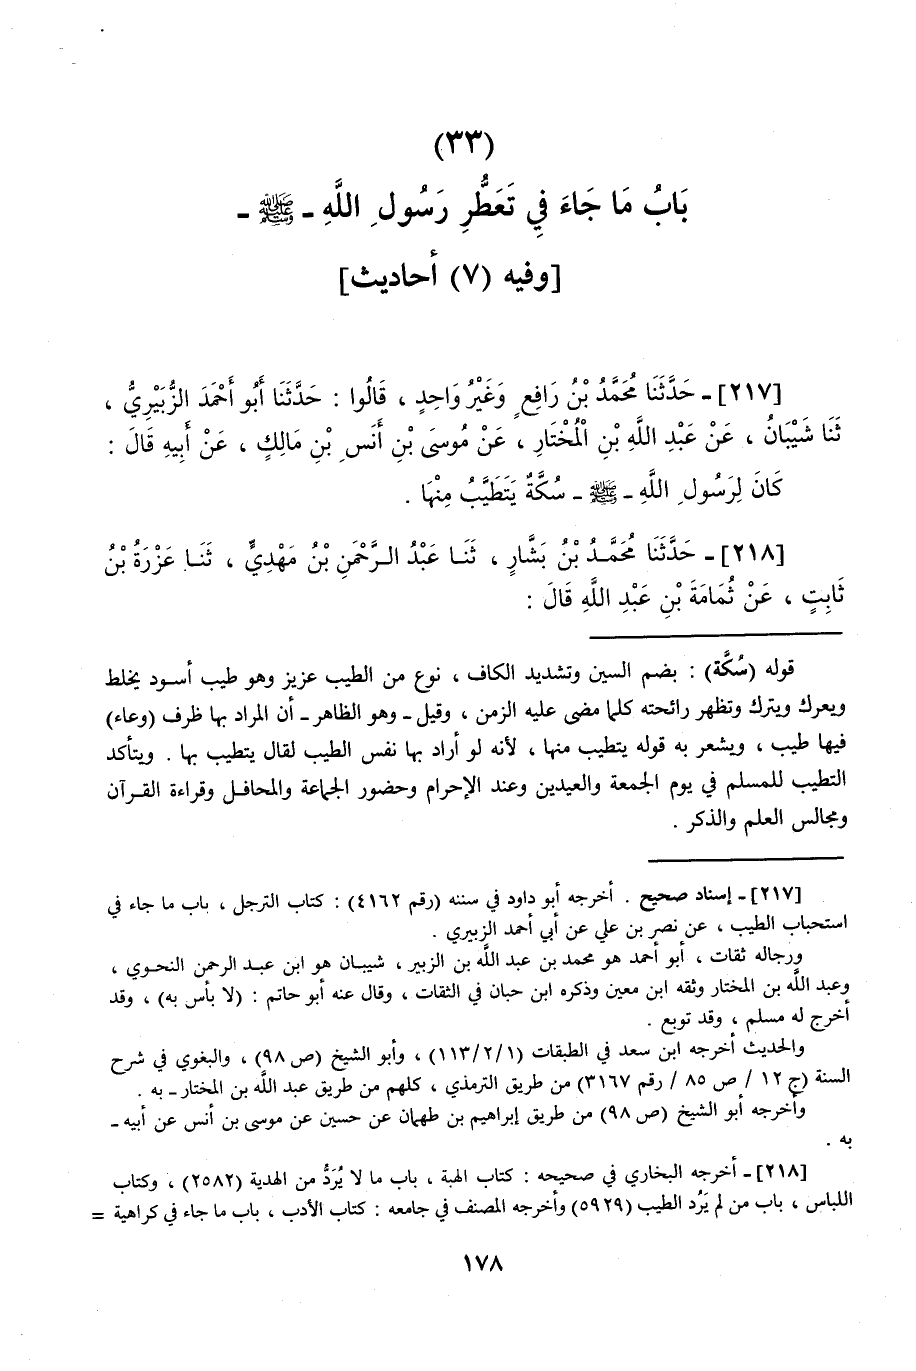 (٣٣)
بَابُ مَا جَاءَ فِي تَعَطُّرِ رَسُولِ اللَّهِ ـ ﷺ ـ
[وفيه (٧) أحاديث]
[٢١٧] ـ حَدَّثَنَا مُحَمَّدُ بْنُ رَافِعٍ وَغَيْرُ وَاحِدٍ ، قَالُوا : حَدَّثَنَا أَبُو أَحْمَدَ الزُّبَيْرِيُّ ،
ثَنَا شَيْبَانُ ، عَنْ عَبْدِ اللَّهِ بْنِ الْمُخْتَارِ ، عَنْ مُوسَى بْنِ أَنَسِ بْنِ مَالِكٍ ، عَنْ أَبِيهِ قَالَ :
كَانَ لِرَسُولِ اللَّهِ ـ ﷺ ـ سُكَّةٌ يَتَطَيَّبُ مِنْهَا .
[٢١٨] ـ حَدَّثَنَا مُحَمَّدُ بْنُ بَشَّارٍ ، ثَنَا عَبْدُ الرَّحْمَنِ بْنُ مَهْدِيٍّ ، ثَنَا عَزْرَةُ بْنُ
ثَابِتٍ ، عَنْ ثُمَامَةَ بْنِ عَبْدِ اللَّهِ قَالَ :
قوله (سُكَّة) : بضم السين وتشديد الكاف ، نوع من الطيب عزيز وهو طيب أسود يخلط
ويعرك ويترك وتظهر رائحته كلما مضى عليه الزمن ، وقيل ـ وهو الظاهر ـ أن المراد بها ظرف (وعاء)
فيها طيب ، ويشعر به قوله يتطيب منها ، لأنه لو أراد بها نفس الطيب لقال يتطيب بها . ويتأكد
التطيب للمسلم في يوم الجمعة والعيدين وعند الإحرام وحضور الجماعة والمحافل وقراءة القرآن
ومجالس العلم والذكر .
[٢١٧] ـ إسناد صحيح . أخرجه أبو داود في سننه (رقم ٤١٦٢) : كتاب الترجل ، باب ما جاء في
استحباب الطيب ، عن نصر بن علي عن أبي أحمد الزبيري .
ورجاله ثقات ، أبو أحمد هو محمد بن عبد اللَّه بن الزبير ، شيبان هو ابن عبد الرحمن النحوي ،
وعبد اللَّه بن المختار وثقه ابن معين وذكره ابن حبان في الثقات ، وقال عنه أبو حاتم : (لا بأس به) ، وقد
أخرج له مسلم ، وقد توبع .
والحديث أخرجه ابن سعد في الطبقات (١١٣/٢/١) ، وأبو الشيخ (ص ٩٨) ، والبغوي في شرح
السنة (ج ١٢ / ص ٨٥ / رقم ٣١٦٧) من طريق الترمذي ، كلهم من طريق عبد اللَّه بن المختار ـ به .
وأخرجه أبو الشيخ (ص ٩٨) من طريق إبراهيم بن طهمان عن حسين عن موسى بن أنس عن أبيه ـ
به .
[٢١٨] ـ أخرجه البخاري في صحيحه : كتاب الهبة ، باب ما لا يُرَدُّ من الهدية (٢٥٨٢) ، وكتاب
اللباس ، باب من لم يَرُد الطيب (٥٩٢٩) وأخرجه المصنف في جامعه : كتاب الأدب ، باب ما جاء في كراهية =
١٧٨